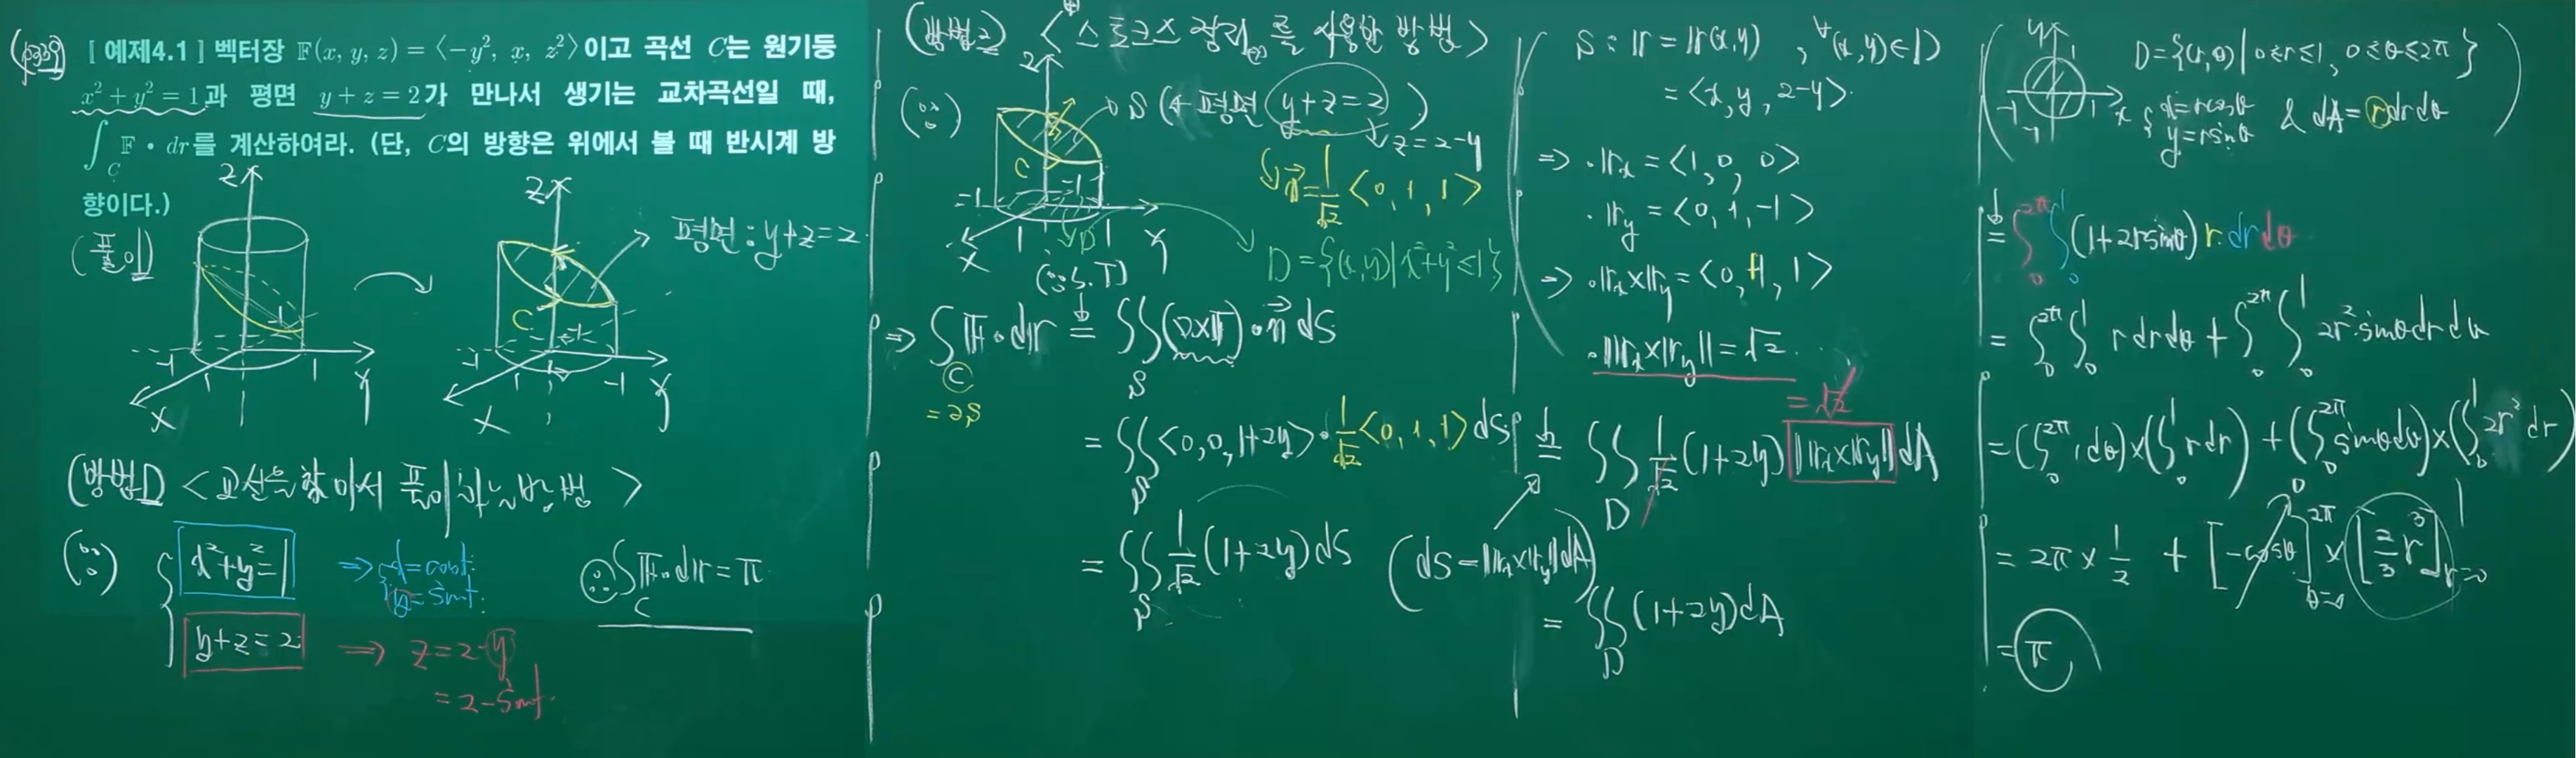 (p339)
[ 예제4.1 ] 벡터장 𝔽(x, y, z) = ⟨−y², x, z²⟩이고 곡선 C는 원기둥
x² + y² = 1과 평면 y + z = 2가 만나서 생기는 교차곡선일 때,
∫_C 𝔽 • dr를 계산하여라. (단, C의 방향은 위에서 볼 때 반시계 방
향이다.)
(풀이)
Z
-1
-1
1
1
X
Y
Z
C
-1
-1
1
1
X
Y
평면 : y+z=2
(방법1) < 교선을 찾아서 풀이하는 방법 >
(∵)
x²+y²=1
⇒ x=cost
y=sint
y+z=2
⇒ z=2-y
=2-sint
∴ ∫_C 𝔽·d𝕣 = π
(방법2) < 스토크스 정리를 사용한 방법 >
(∵)
Z
C
-1
-1
1
1
X
Y
D
S (← 평면 y+z=2)
z=2-y
n⃗=1/√2 <0, 1, 1>
D={(x,y)|x²+y²≤1}
(∵ S.T)
⇒ ∫_C 𝔽·d𝕣 = ∬_S (∇×𝔽)·n⃗ dS
=∂S
= ∬_S <0,0,1+2y>·1/√2<0,1,1> dS
= ∬_S 1/√2 (1+2y) dS (dS=‖𝕣x×𝕣y‖dA)
S : 𝕣 = 𝕣(x,y) , ∀(x,y)∈D
= <x, y, 2-y>
⇒ ·𝕣x = <1, 0, 0>
·𝕣y = <0, 1, -1>
⇒ ·𝕣x×𝕣y = <0, +1, 1>
·‖𝕣x×𝕣y‖ = √2
=√2
= ∬_D 1/√2 (1+2y) ‖𝕣x×𝕣y‖ dA
= ∬_D (1+2y) dA
y
1
-1
1
-1
x
D={(r,θ)| 0≤r≤1, 0≤θ≤2π}
x=rcosθ
y=rsinθ
& dA=rdrdθ
= ∫₀^2π ∫₀^1 (1+2rsinθ) r dr dθ
= ∫₀^2π ∫₀^1 r dr dθ + ∫₀^2π ∫₀^1 2r² sinθ dr dθ
= (∫₀^2π 1 dθ)×(∫₀^1 r dr) + (∫₀^2π sinθ dθ)×(∫₀^1 2r² dr)
0
= 2π × 1/2 + [-cosθ]_θ=0^2π × [2/3 r³]_r=0^1
= π